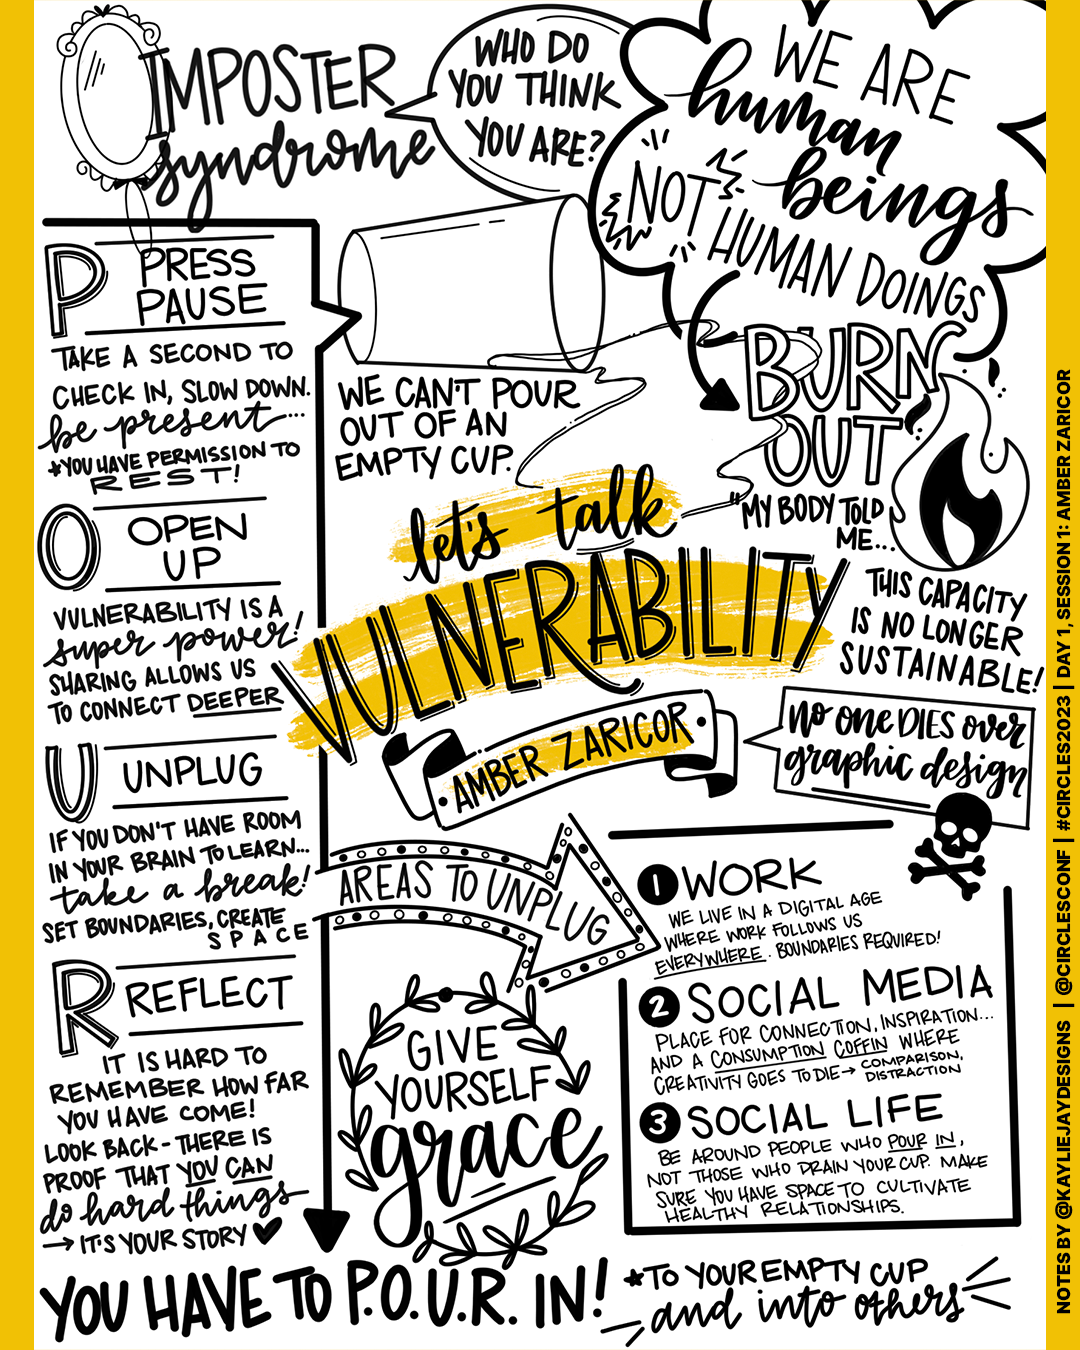 IMPOSTER
syndrome
WHO DO
YOU THINK
YOU ARE?
WE ARE
human
beings
NOT
HUMAN DOINGS
P
PRESS
PAUSE
TAKE A SECOND TO
CHECK IN, SLOW DOWN.
be present...
*YOU HAVE PERMISSION TO
REST!
O
OPEN
UP
VULNERABILITY IS A
super power!
SHARING ALLOWS US
TO CONNECT DEEPER
U
UNPLUG
IF YOU DON'T HAVE ROOM
IN YOUR BRAIN TO LEARN...
take a break!
SET BOUNDARIES, CREATE
SPACE
R
REFLECT
IT IS HARD TO
REMEMBER HOW FAR
YOU HAVE COME!
LOOK BACK - THERE IS
PROOF THAT YOU CAN
do hard things
→ IT'S YOUR STORY ♥
WE CAN'T POUR
OUT OF AN
EMPTY CUP.
BURN
OUT
"MY BODY TOLD
ME...
THIS CAPACITY
IS NO LONGER
SUSTAINABLE!
let's talk
VULNERABILITY
• AMBER ZARICOR •
no one DIES over
graphic design
AREAS TO UNPLUG
1 WORK
WE LIVE IN A DIGITAL AGE
WHERE WORK FOLLOWS US
EVERYWHERE. BOUNDARIES REQUIRED!
2 SOCIAL MEDIA
PLACE FOR CONNECTION, INSPIRATION...
AND A CONSUMPTION COFFIN WHERE
CREATIVITY GOES TO DIE → COMPARISON,
DISTRACTION
3 SOCIAL LIFE
BE AROUND PEOPLE WHO POUR IN,
NOT THOSE WHO DRAIN YOUR CUP. MAKE
SURE YOU HAVE SPACE TO CULTIVATE
HEALTHY RELATIONSHIPS.
GIVE
YOURSELF
grace
YOU HAVE TO P.O.U.R. IN!
*TO YOUR EMPTY CUP
and into others
NOTES BY @KAYLIEJAYDESIGNS | @CIRCLESCONF | #CIRCLES2023 | DAY 1, SESSION 1: AMBER ZARICOR